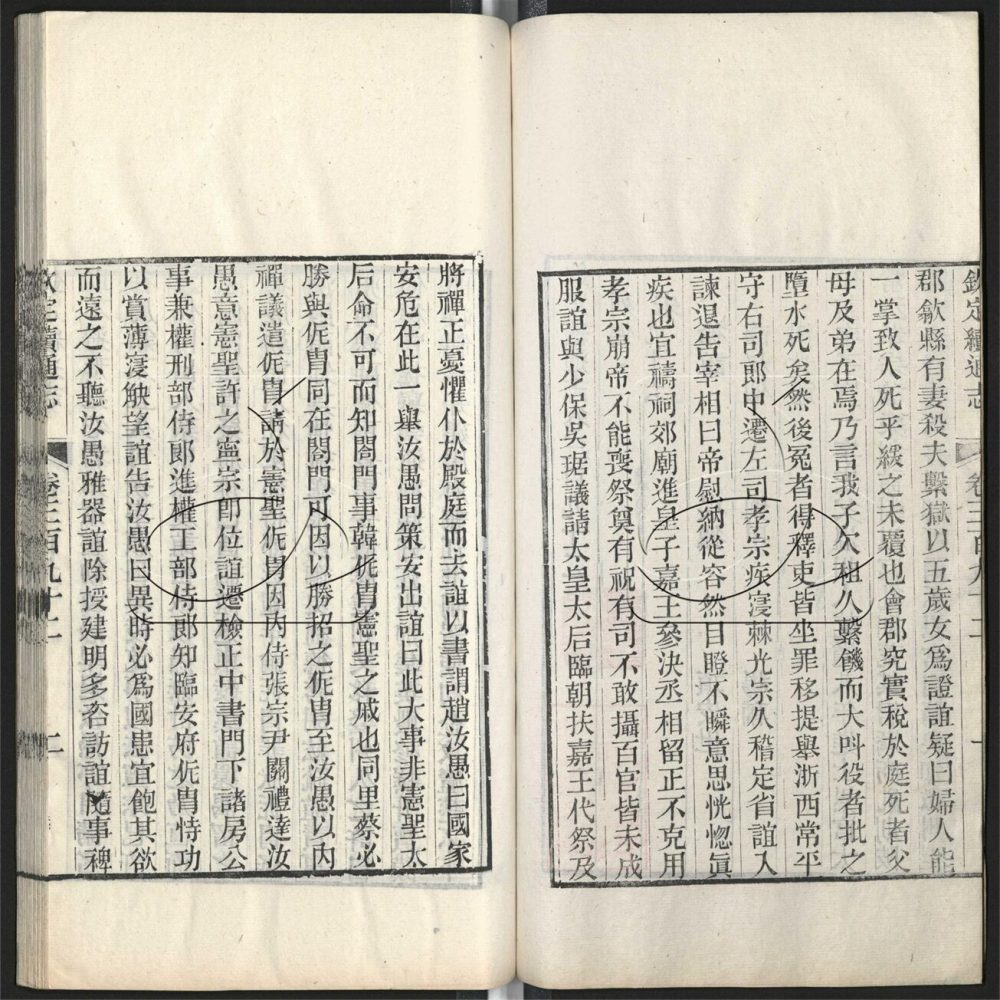 欽定續通志 卷三百九十二 一
郡歙縣有妻殺夫繫獄以五歲女爲證誼疑曰婦人能
一掌致人死乎緩之未覆也會郡究實稅於庭死者父
母及弟在焉乃言我子欠租久繫饑而大叫役者批之
墮水死矣然後冤者得釋吏皆坐罪移提舉浙西常平
守右司郎中遷左司孝宗疾寖棘光宗久稽定省誼入
諫退告宰相曰帝慰納從容然目瞪不瞬意思恍惚眞
疾也宜禱祠郊廟進皇子嘉王參決丞相留正不克用
孝宗崩帝不能喪祭奠有祝有司不敢攝百官皆未成
服誼與少保吳琚議請太皇太后臨朝扶嘉王代祭及
將禪正憂懼仆於殿庭而去誼以書謂趙汝愚曰國家
安危在此一舉汝愚問策安出誼曰此大事非憲聖太
后命不可而知閤門事韓侂胄憲聖之戚也同里蔡必
勝與侂胄同在閤門可因以勝招之侂胄至汝愚以內
禪議遣侂胄請於憲聖侂胄因內侍張宗尹關禮達汝
愚意憲聖許之寧宗即位誼遷檢正中書門下諸房公
事兼權刑部侍郎進權工部侍郎知臨安府侂胄恃功
以賞薄寖觖望誼告汝愚曰異時必爲國患宜飽其欲
而遠之不聽汝愚雅器誼除授建明多咨訪誼隨事裨
欽定續通志 卷三百九十二 二